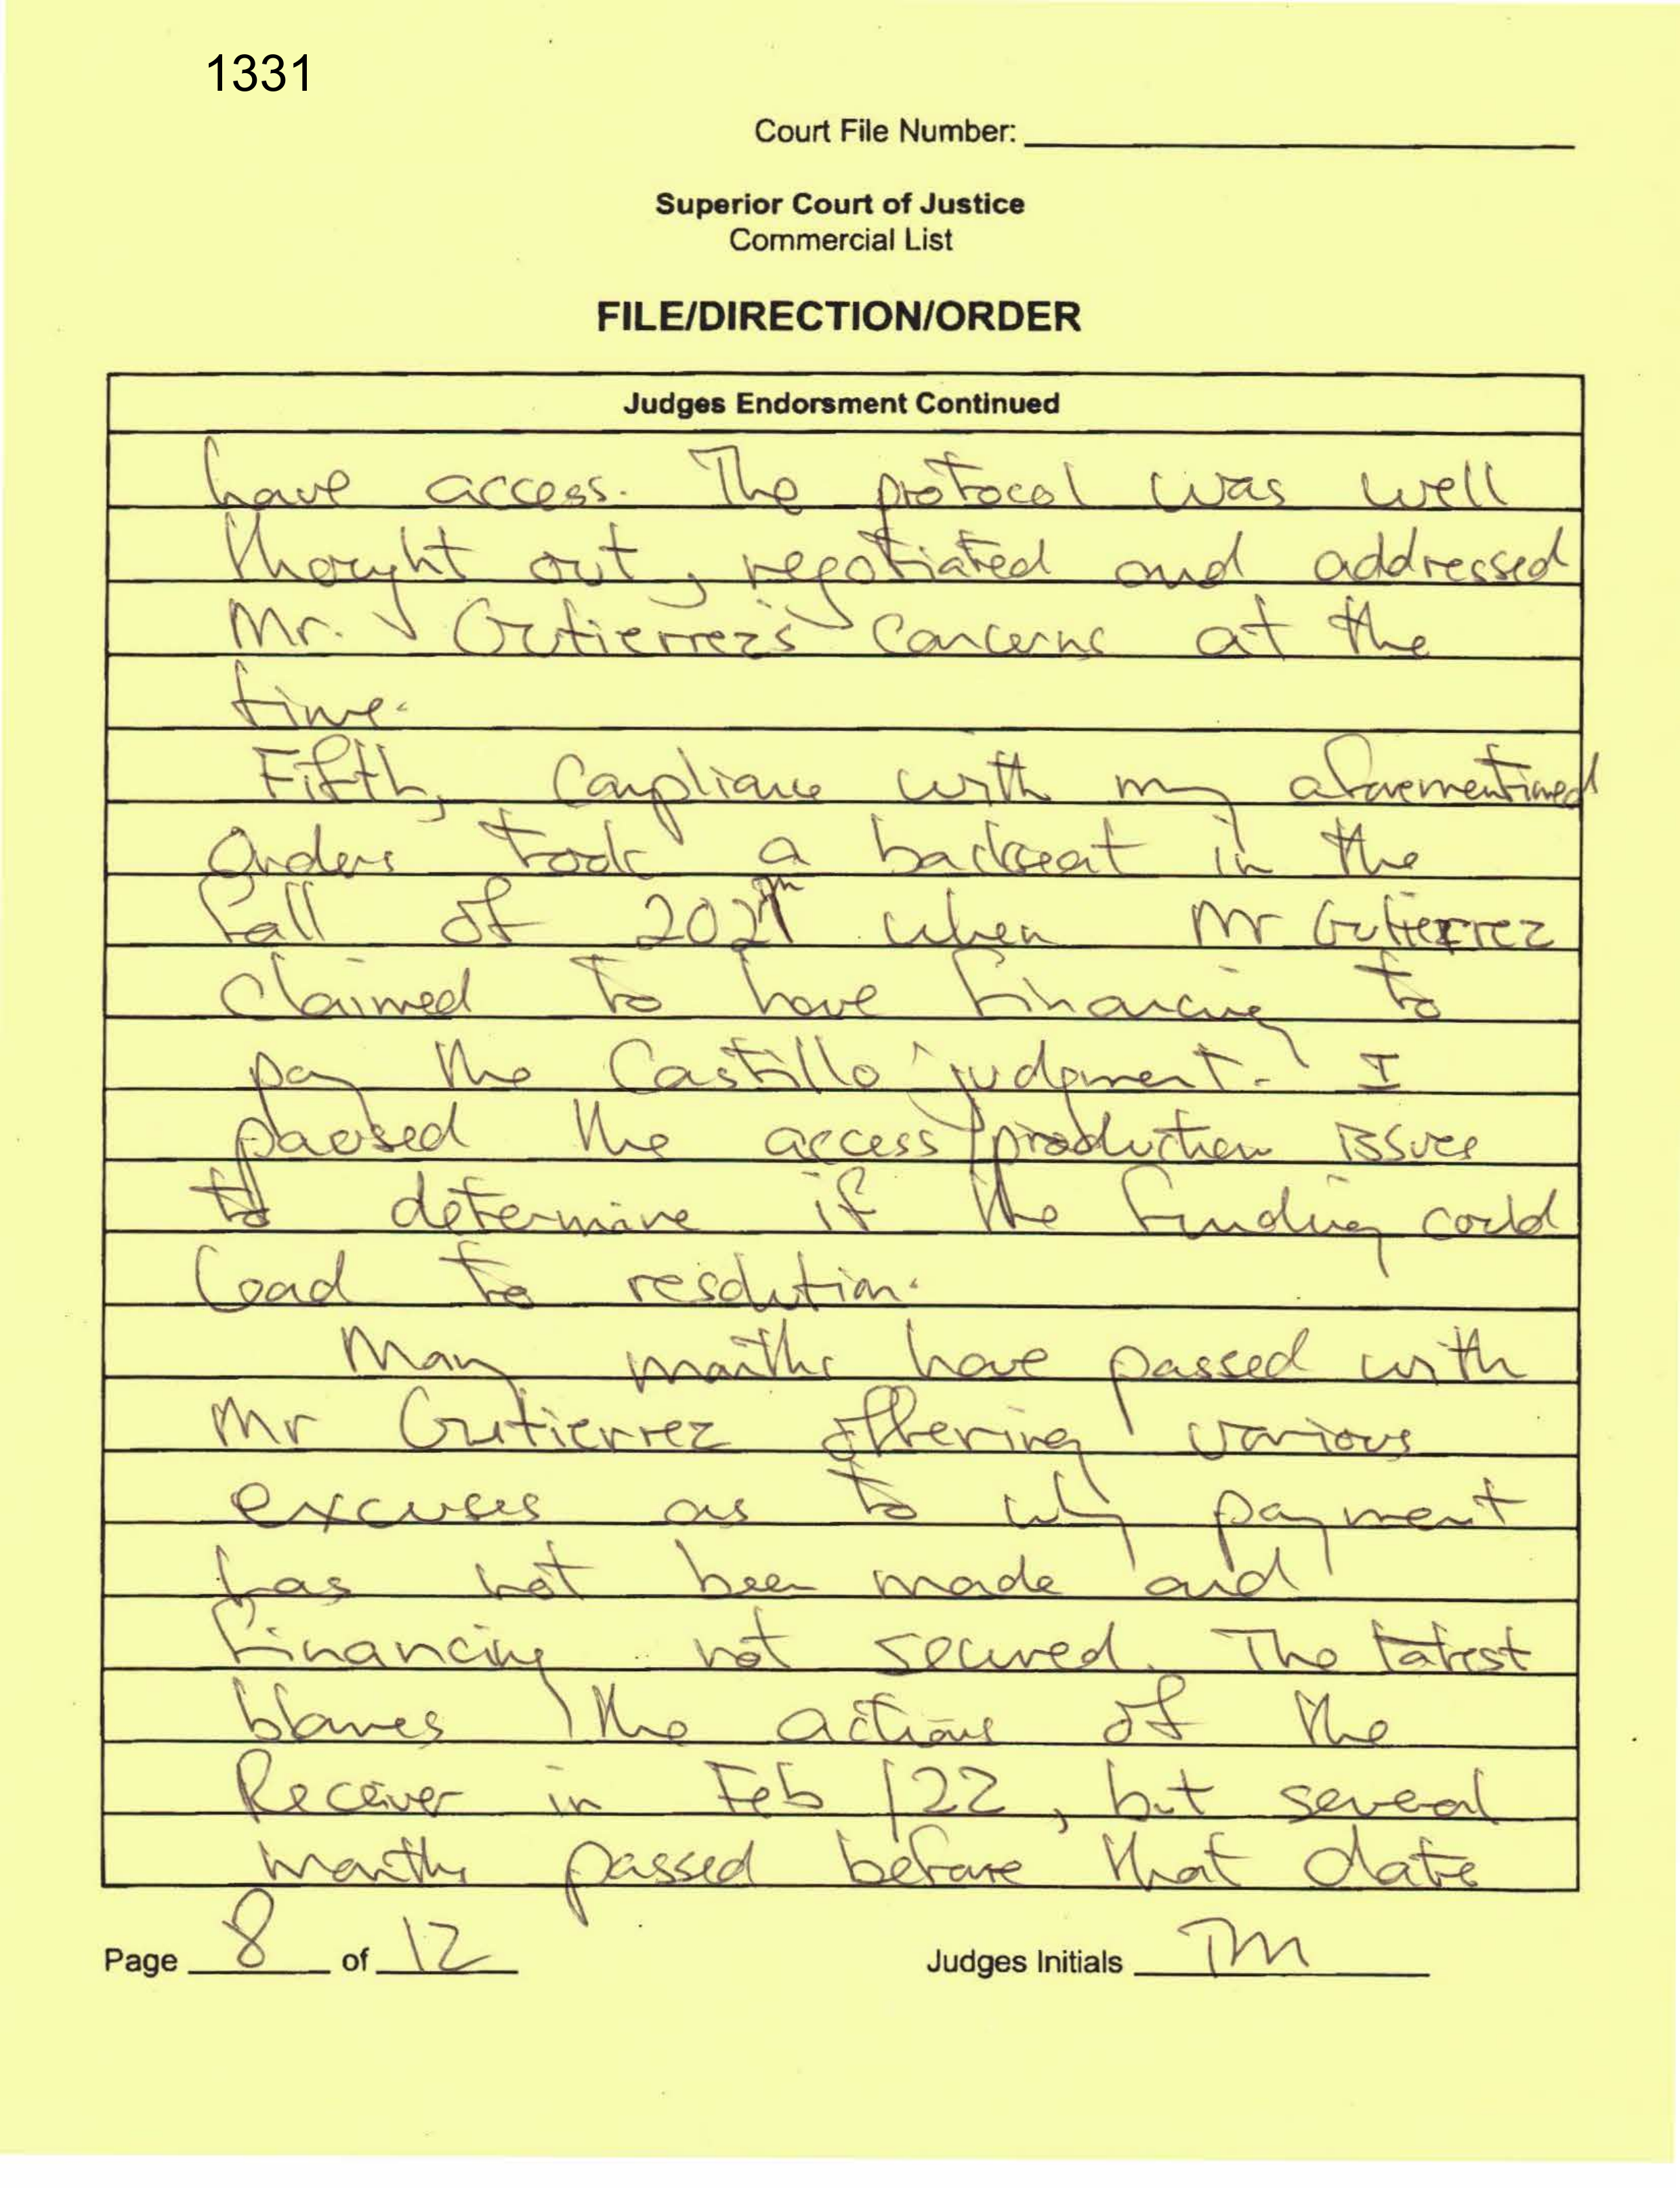 1331
Court File Number:
Superior Court of Justice
Commercial List
FILE/DIRECTION/ORDER
Judges Endorsment Continued
have access. The protocol was well
thought out, negotiated and addressed
Mr. Gutierrez's concerns at the
time.
Fifth, compliance with my aforementioned
Orders took a backseat in the
fall of 2021 when Mr Gutierrez
claimed to have financing to
pay the Castillo judgment. I
paused the access/production issues
to determine if the funding could
lead to resolution.
Many months have passed with
Mr Gutierrez offering various
excuses as to why payment
has not been made and
financing not secured. The latest
blames the actions of the
Receiver in Feb/22, but several
months passed before that date
Page 8 of 12 Judges Initials TM